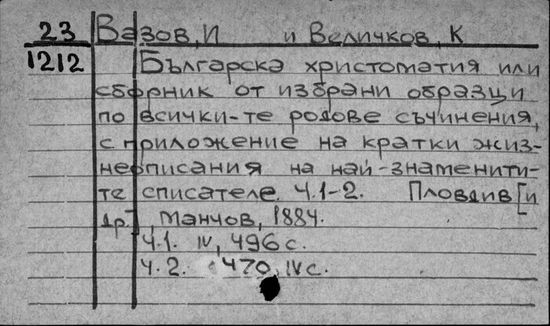 23 Вазов, И и Величков, К
1212 Българска христоматия или
сборник от избрани образци
по всички-те родове съчинения,
с приложение на кратки жиз-
неописания на най-знаменити-
те списателе. Ч.1-2. Пловдив [и
др.], Манчов, 1884.
Ч.1. IV, 496 с.
Ч.2. 470, IV с.